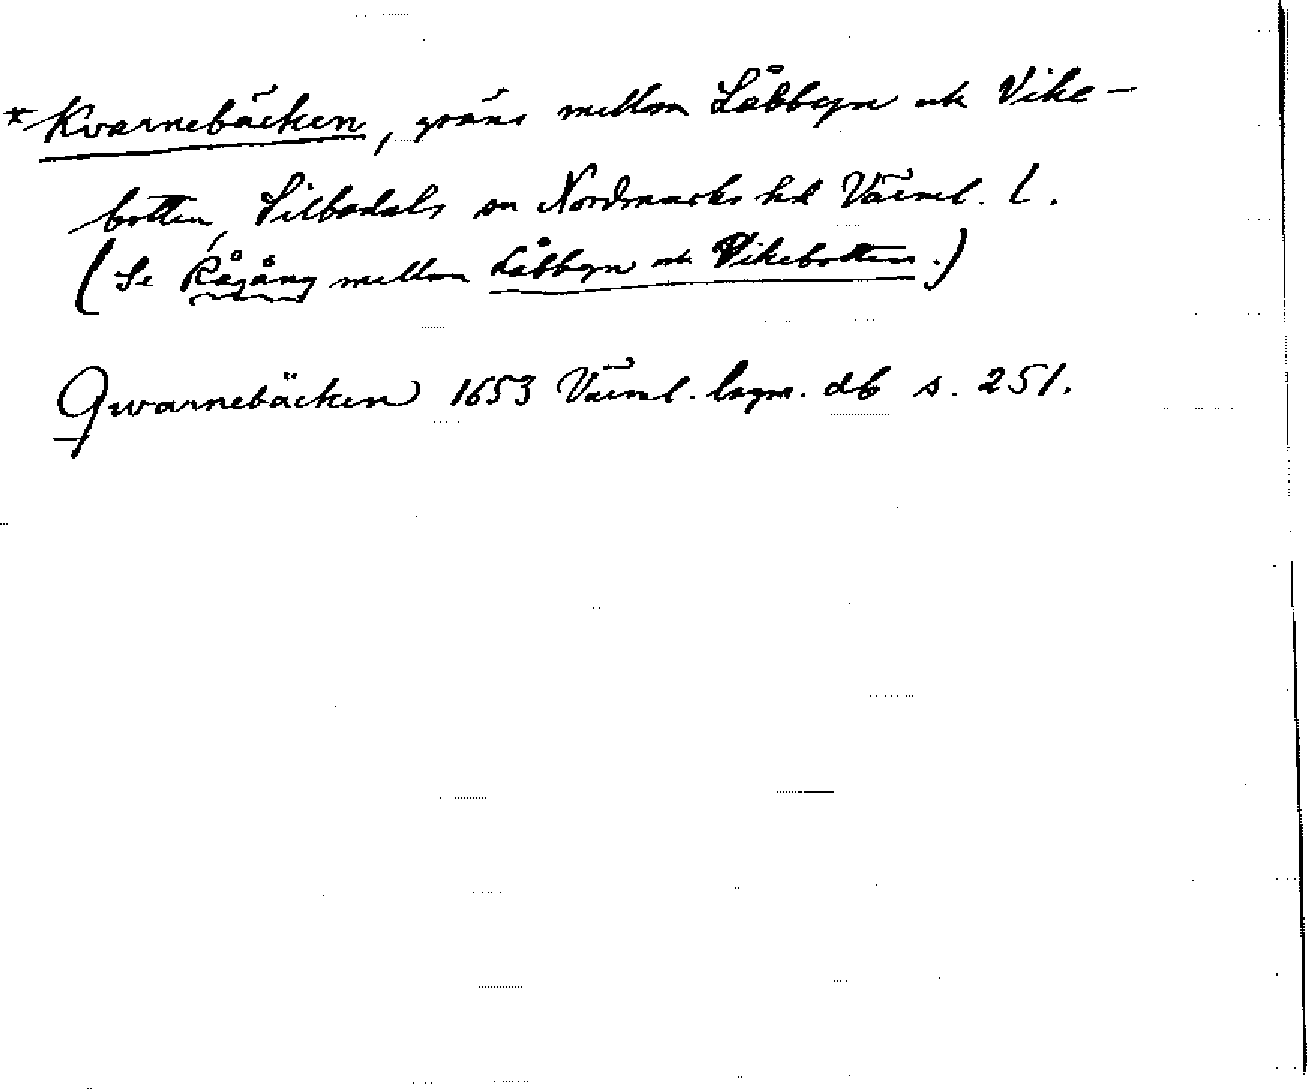 *Kvarnebäcken, gräns mellan Låbbyn och Vike-
botten, Silbodals sn Nordmarks hd Värml. l.
(Se Rågång mellan Låbbyn och Vikebotten.)
Qwarnebäcken 1653 Värml. lagm. db s. 251.